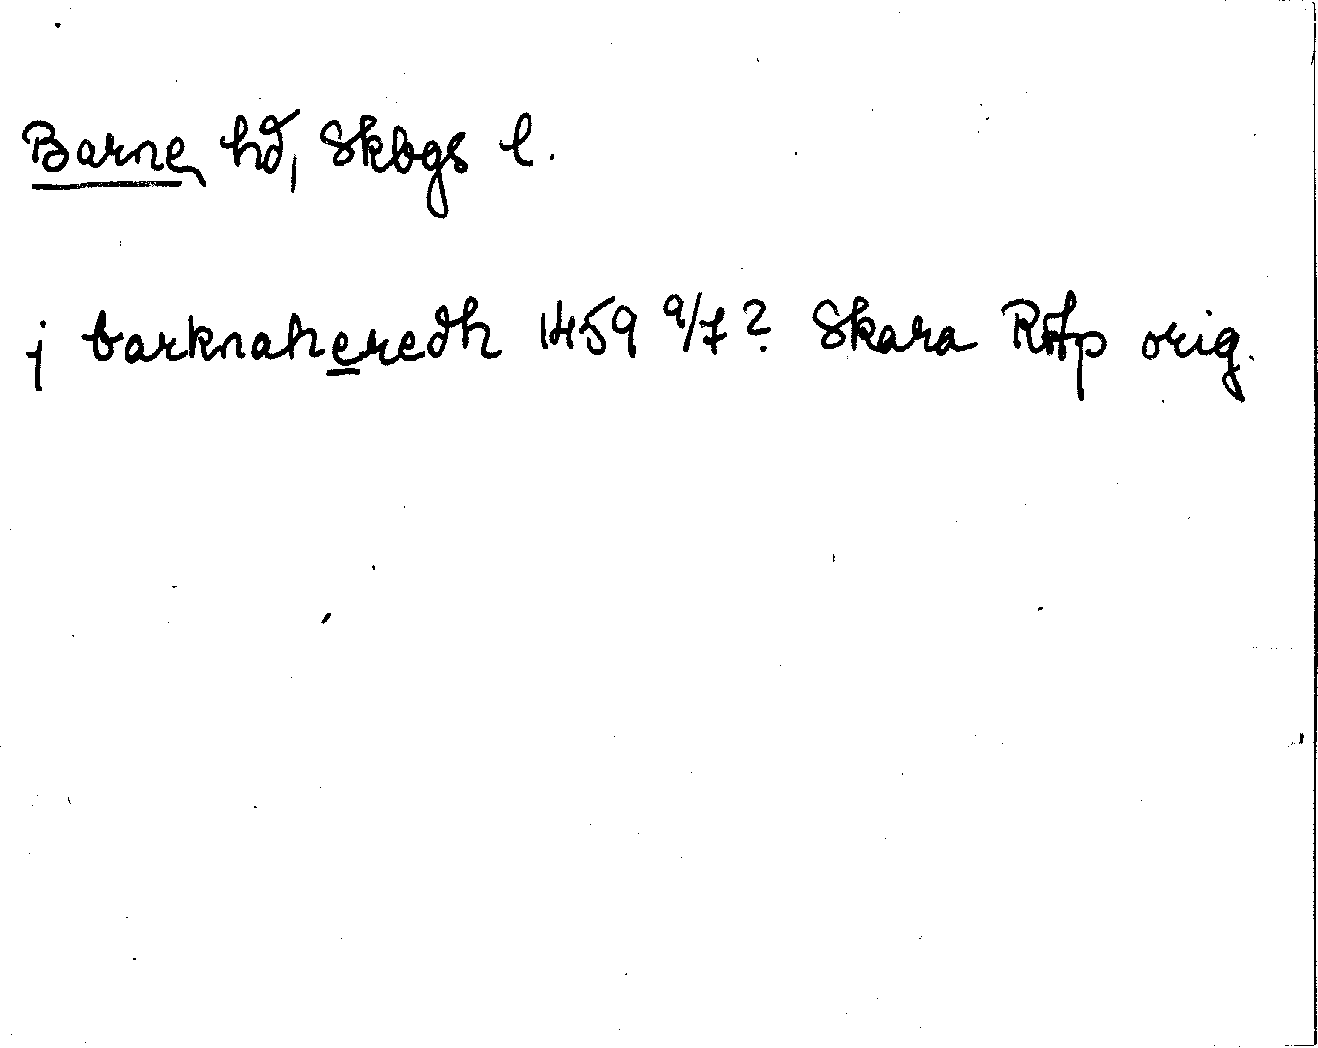 Barne hd, Skbgs l.
j barknaheredh 1459 9/7? Skara RAp orig.